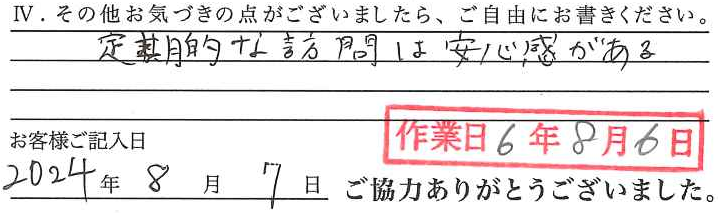 Ⅳ．その他お気づきの点がございましたら、ご自由にお書きください。
定期的な訪問は安心感がある
お客様ご記入日
作業日6年8月6日
2024年8月7日 ご協力ありがとうございました。